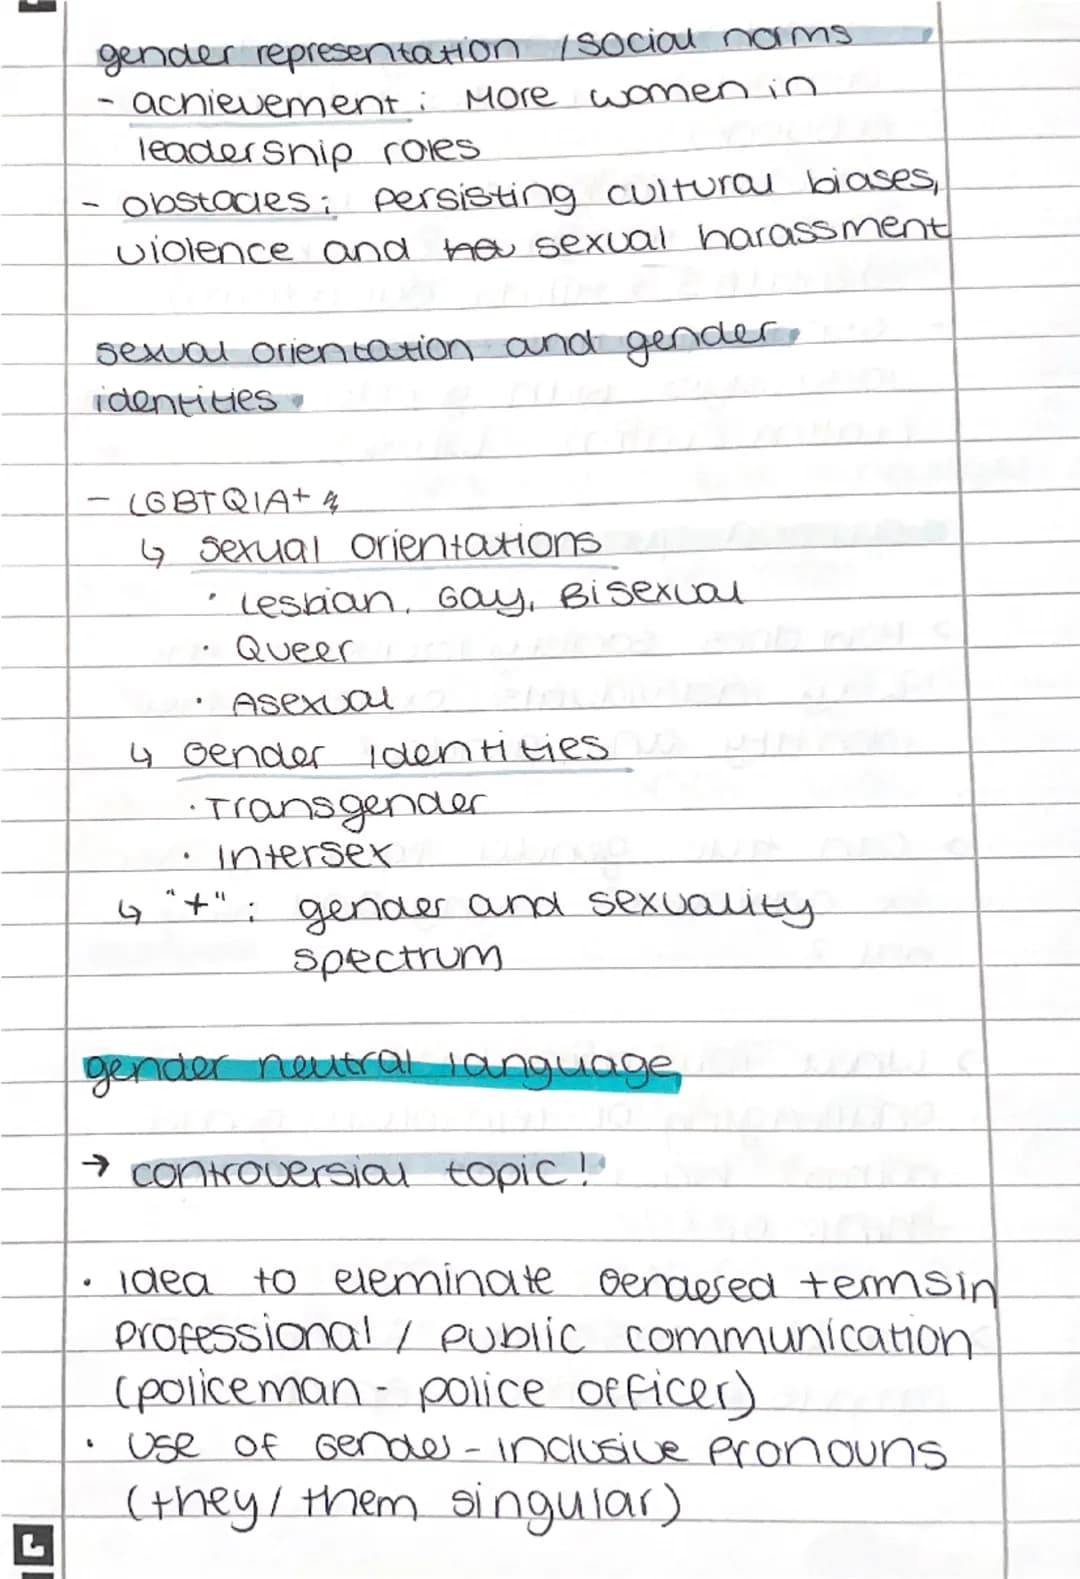 gender representation / social norms
- achievement: More women in
leadership roles
- obstacles: persisting cultural biases,
violence and sexual harassment
sexual orientation and gender
identities
- LGBTQIA+
↳ sexual orientations
• Lesbian, Gay, Bisexual
• Queer
• Asexual
↳ Gender identities
• Transgender
• Intersex
↳ "+": gender and sexuality
spectrum
gender neutral language
→ controversial topic!
• idea to eleminate gendered terms in
professional / public communication
(policeman - police officer)
• use of Gender-inclusive pronouns
(they/them singular)